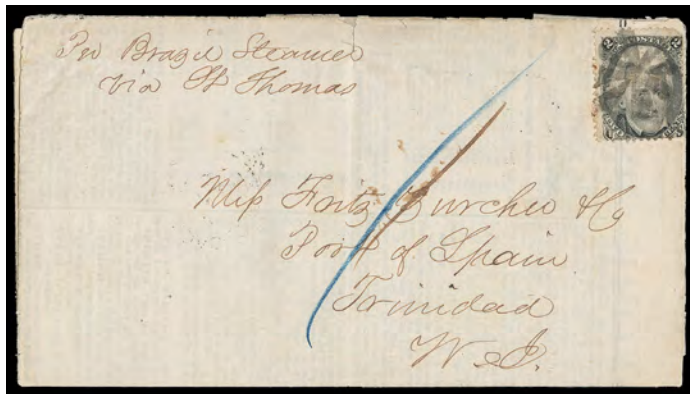 Per Brazil Steamer
via St Thomas
Mess Fritz Zurcher & Co
Port of Spain
Trinidad
W. I.
2 2